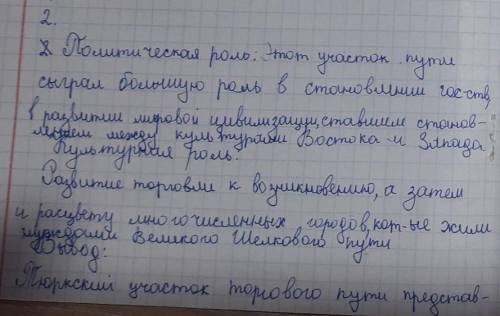 2.
2 Политическая роль: Этот участок пути
сыграл большую роль в становлении гос-ств,
в развитии мировой цивилизации, ставшем станов-
лением между культурами Востока и Запада
Культурная роль:
Развитие торговли к возникновению, а затем
и расцвету многочисленных городов, кот-ые жили
нуждами Великого Шелкового пути
Вывод:
Тюркский участок торгового пути представ-